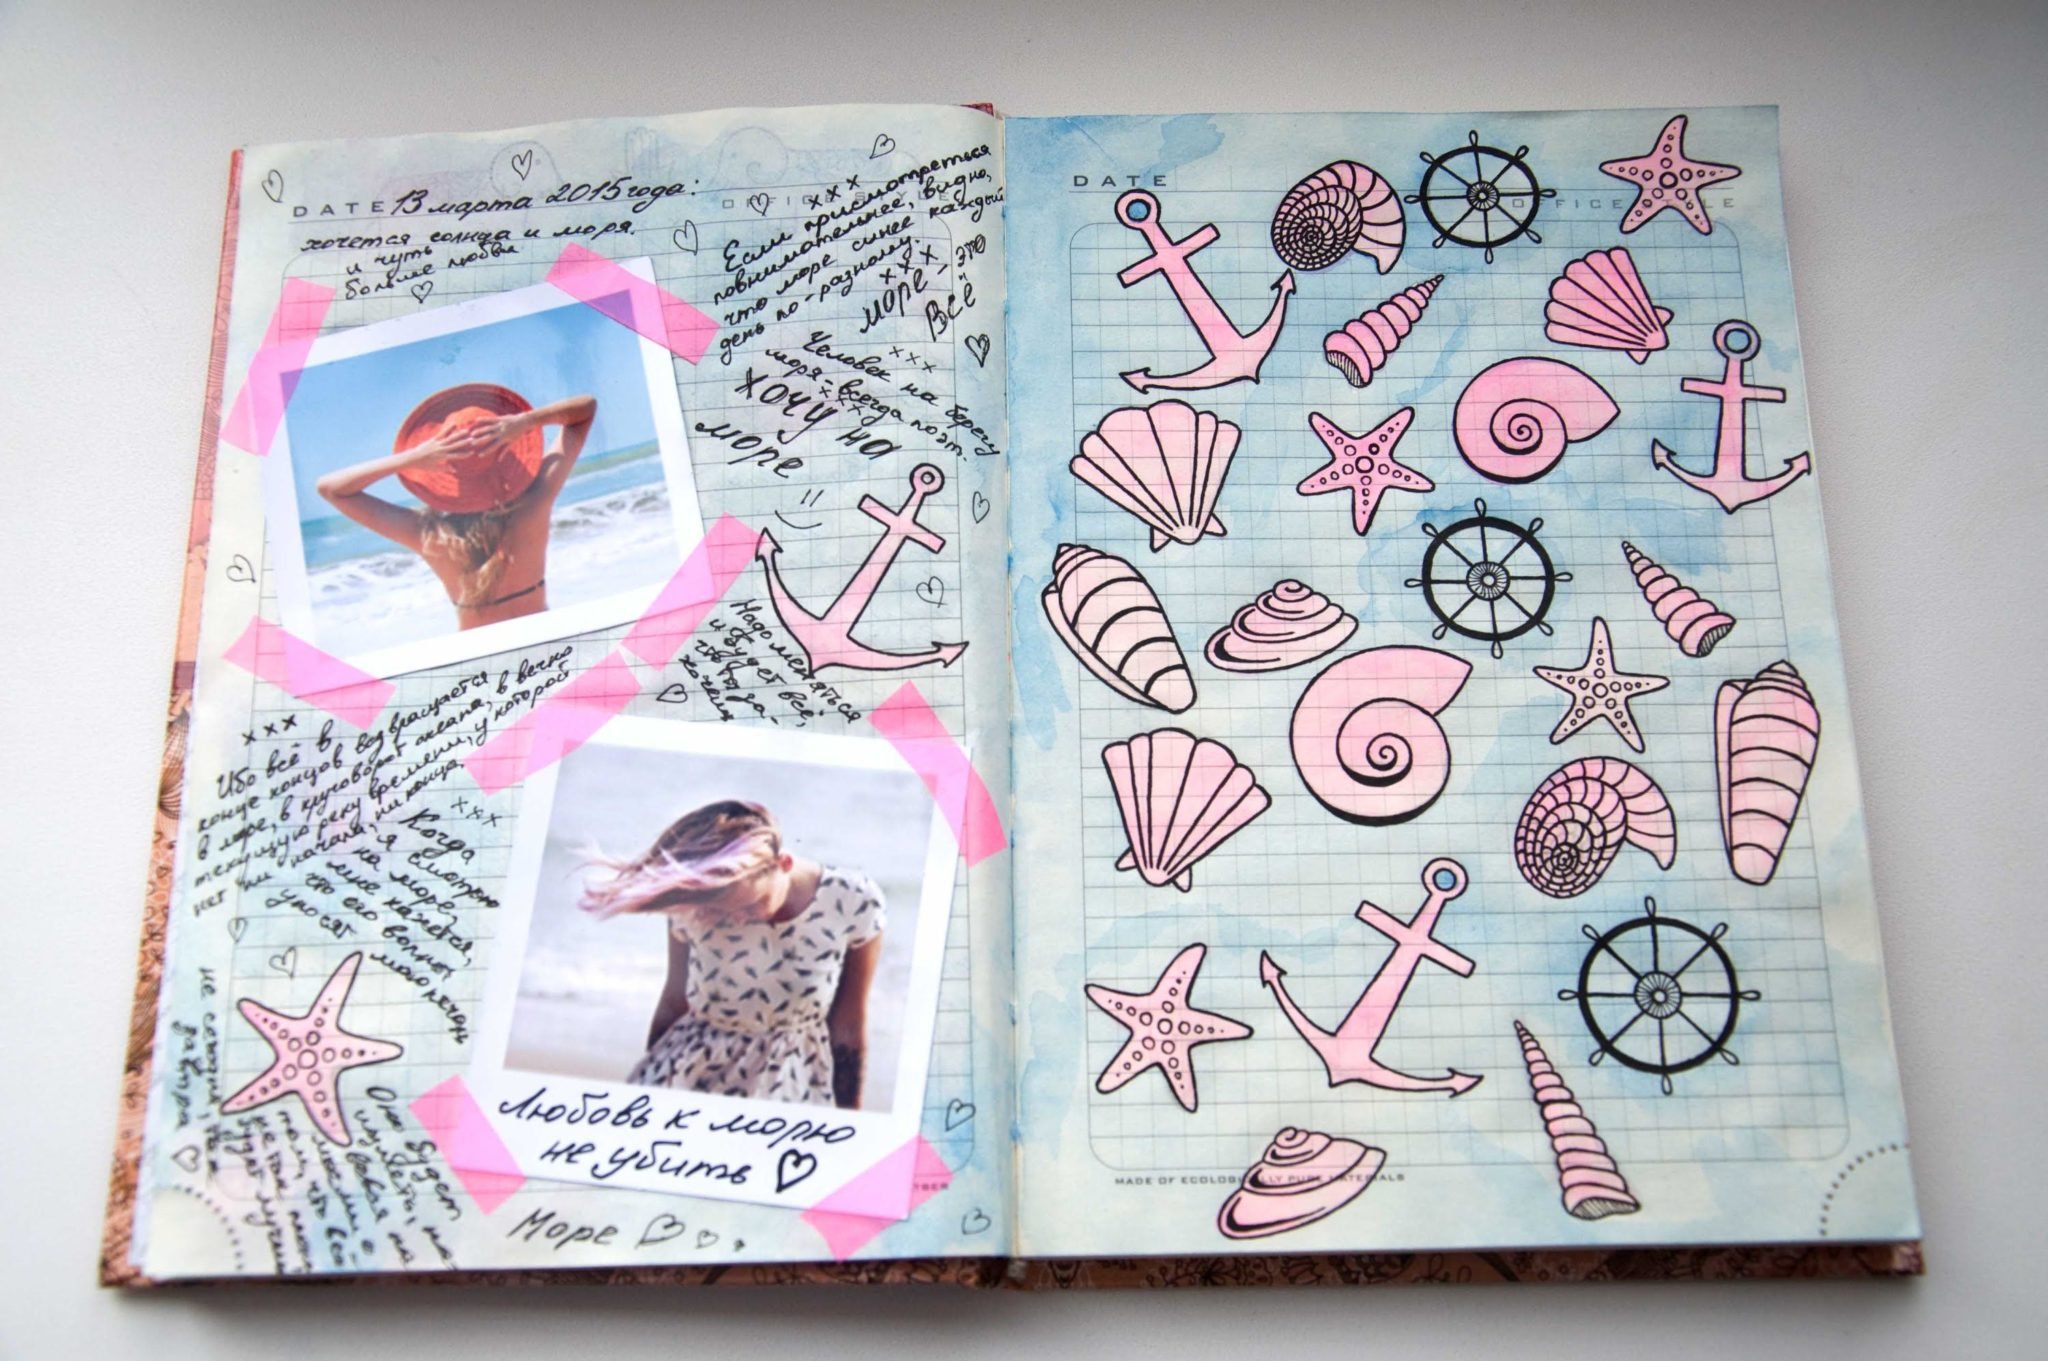 DATE 13 марта 2015 года:
хочется солнца и моря.
и чуть
больше любви
OFFICE STYLE
× × ×
Если присмотреться
повнимательнее, видно,
что море синее каждый
день по-разному.
× × ×
море – это
Всё
× × ×
Человек на берегу
моря – всегда поэт.
× × ×
ХОЧУ НА
море
Надо меняться
и будет всё,
что за-
хочешь
× × ×
Ибо всё в
конце концов возвращается
в море, в круговорот океана, в вечно
текущую реку времени, у которой
нет ни начала, ни конца.
× × ×
Когда
я смотрю
на море,
мне кажется,
что его волны
уносят мою печаль
Любовь к морю
не убить
Море
не
завтра
Оно будет
на
DATE
OFFICE STYLE
MADE OF ECOLOGICALLY PURE MATERIALS